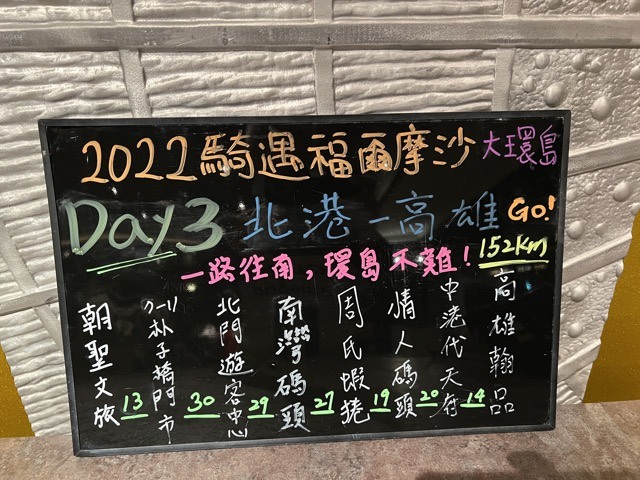 2022騎遇福爾摩沙 大環島
Day3 北港-高雄 Go!
一路往南，環島不難！ 152km
朝聖文旅
13
7-11朴子橋門市
30
北門遊客中心
29
南灣碼頭
27
周氏蝦捲
19
情人碼頭
20
中港代天府
14
高雄翰品